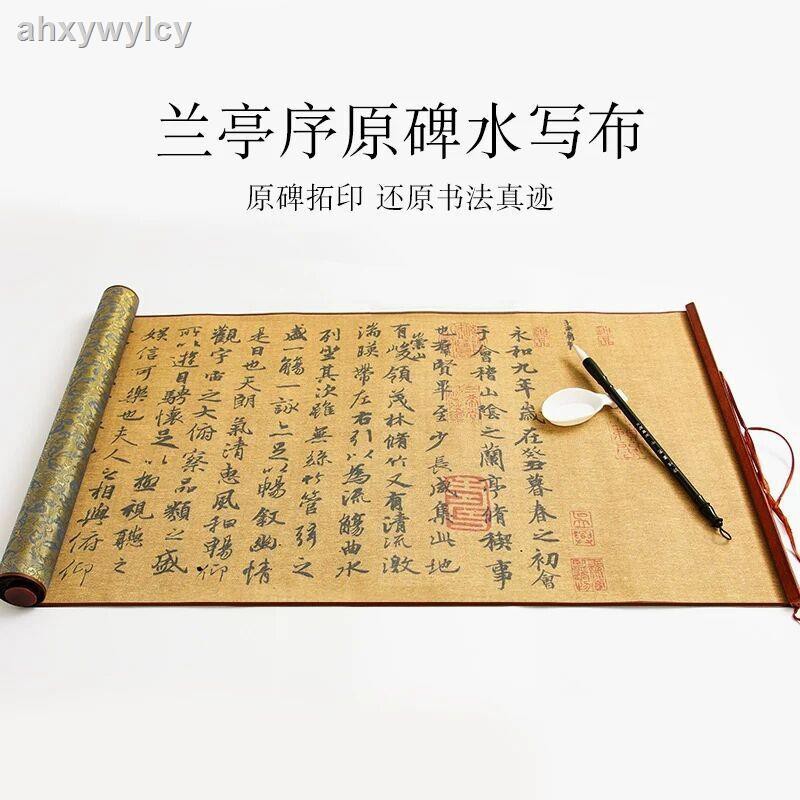 ahxywylcy
兰亭序原碑水写布
原碑拓印 还原书法真迹
永和九年歲在癸丑暮春之初會
于會稽山陰之蘭亭脩稧事
也羣賢畢至少長咸集此地
有峻領茂林脩竹又有清流激
崇山
湍暎帶左右引以為流觴曲水
列坐其次雖無絲竹管弦之
盛一觴一詠上足以暢敘幽情
是日也天朗氣清惠風和暢仰
觀宇宙之大俯察品類之盛
所以遊目騁懷足以極視聽之
娛信可樂也夫人之相與俯仰